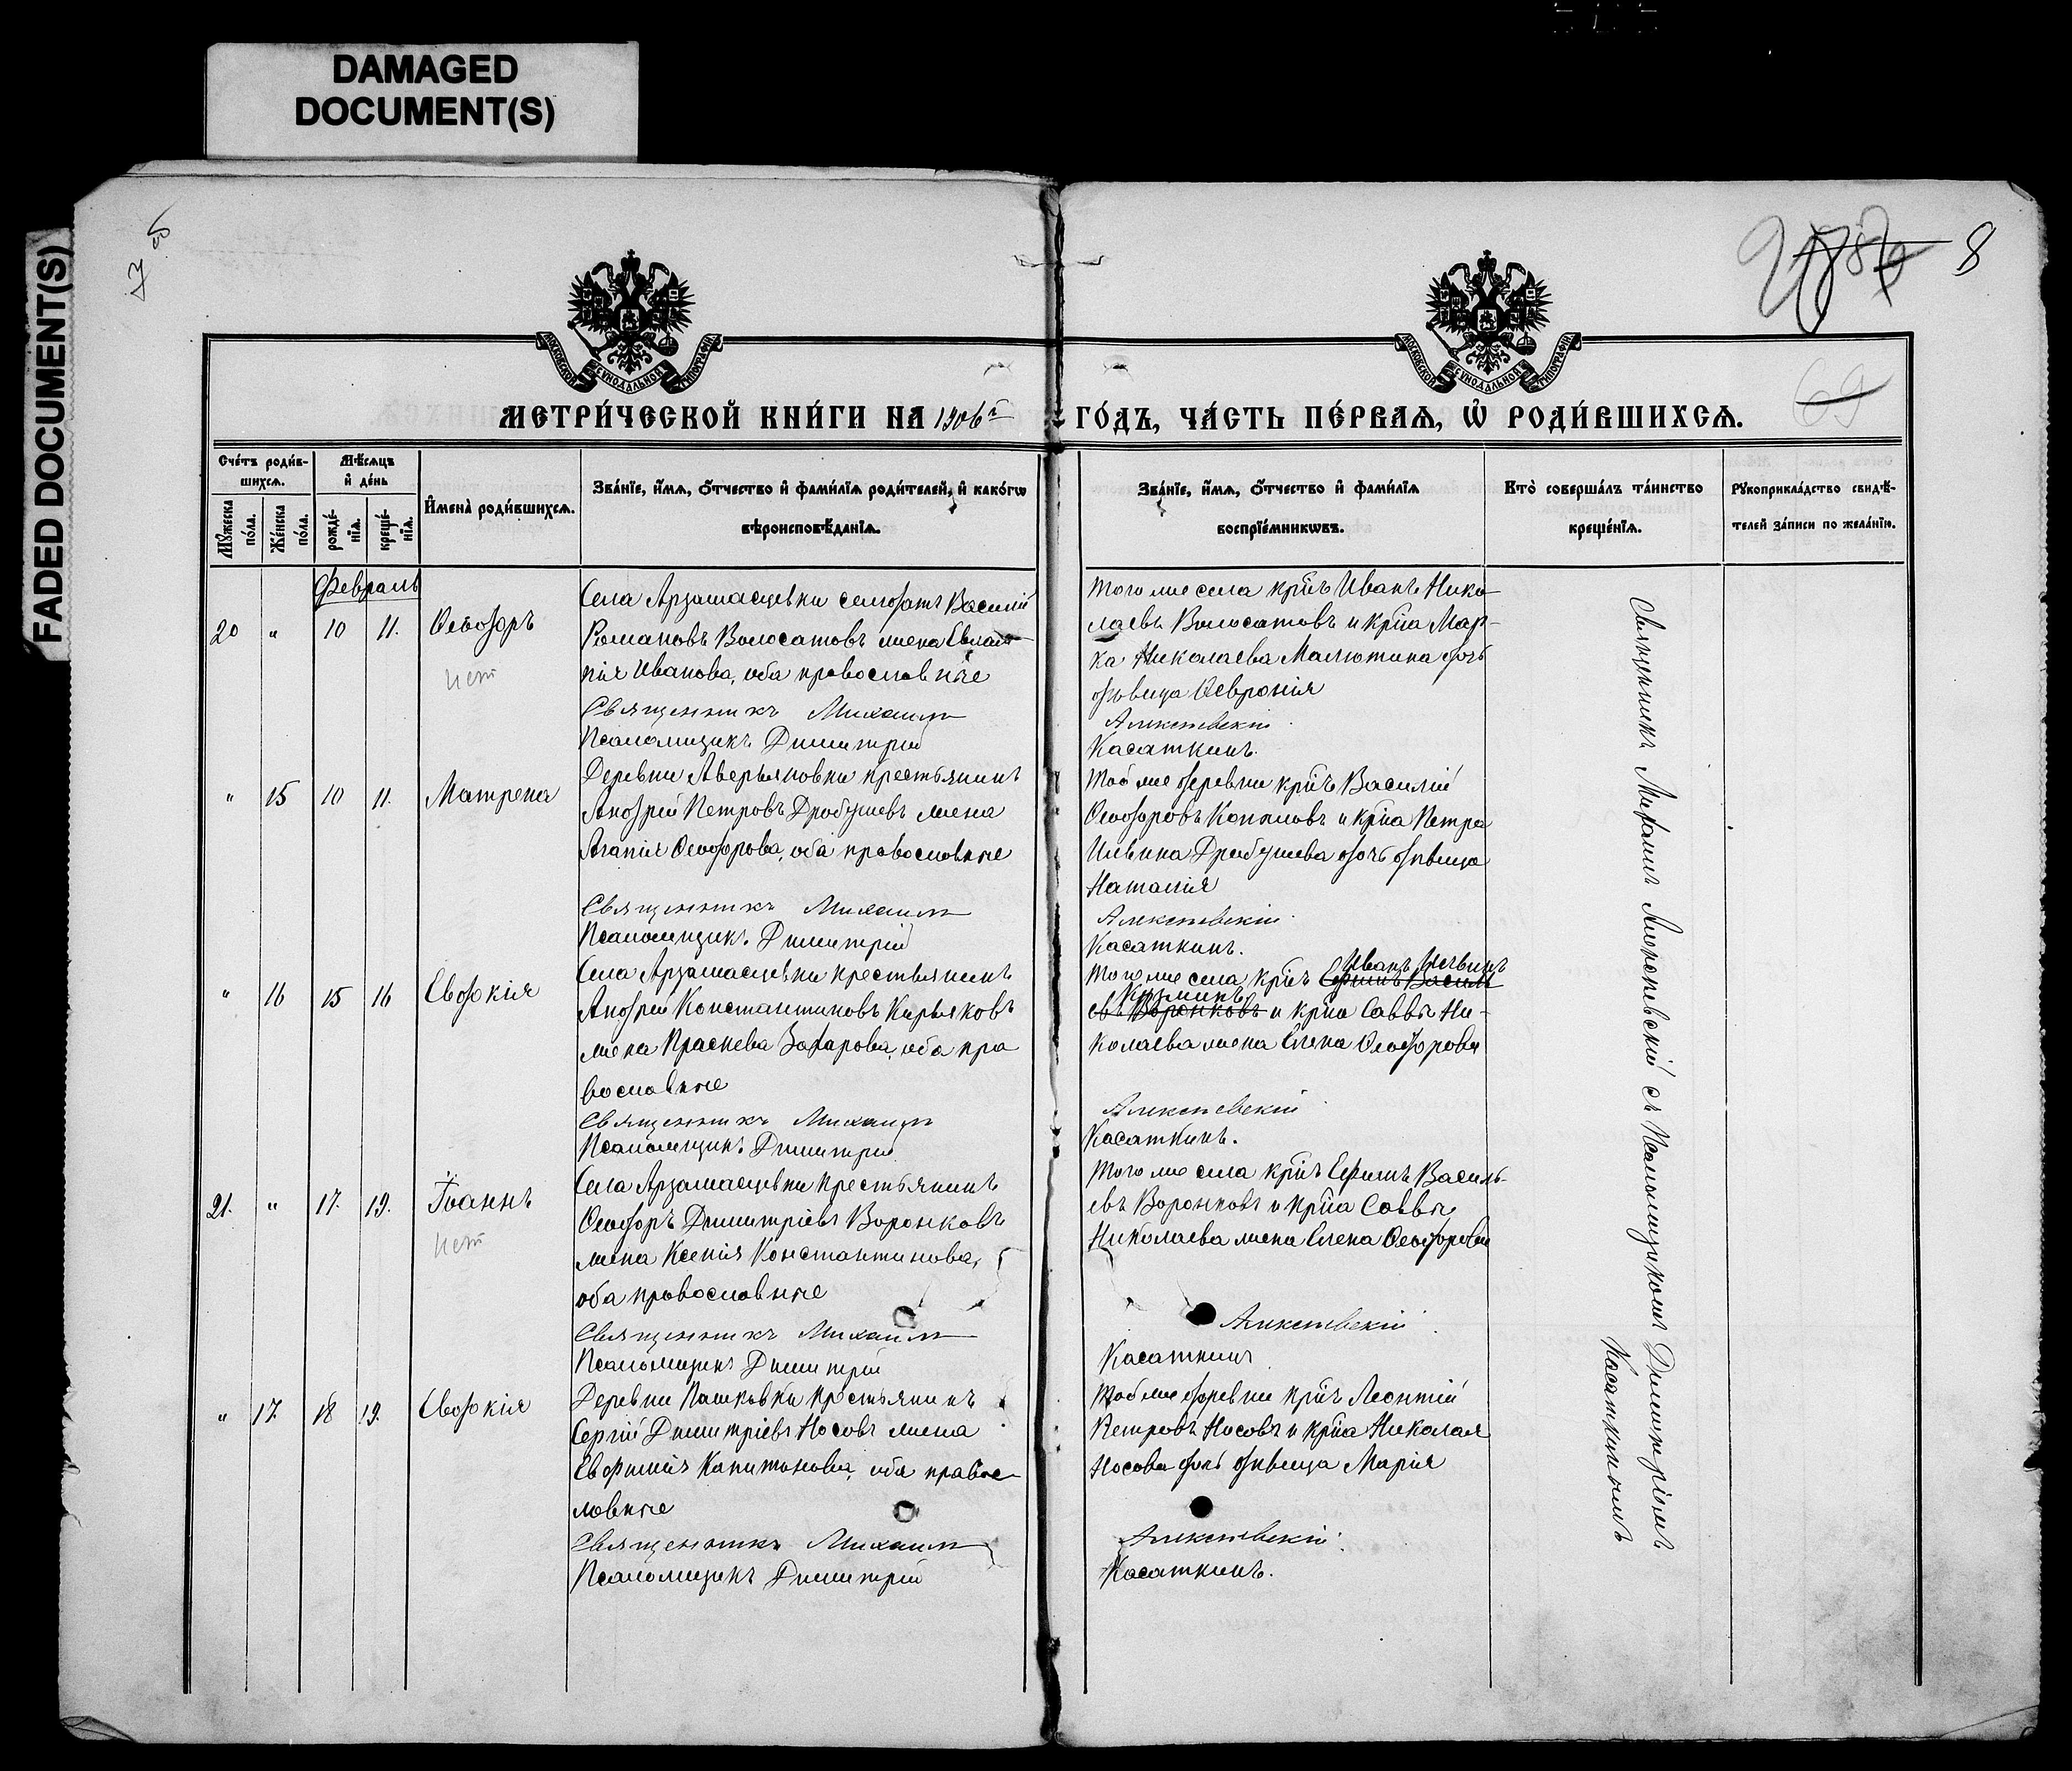 DAMAGED
DOCUMENT(S)
FADED DOCUMENT(S)
7 об
8
69
МОСКОВСКОЙ СѴНОДАЛЬНОЙ ТИПОГРАФІИ
МОСКОВСКОЙ СѴНОДАЛЬНОЙ ТИПОГРАФІИ
МЕТРИ́ЧЕСКОЙ КНИ́ГИ НА 1906й ГО́ДЪ, ЧА́СТЬ ПЕ́РВАѦ, Ѽ РОДИ́ВШИХСѦ.
Сче́тъ роди́в-
шихсѧ.
Мѣ́сѧцъ
и҆ де́нь
Мꙋ́жеска
по́ла.
Же́нска
по́ла.
рожде́-
нїѧ.
креще́-
нїѧ.
И҆мена̀ роди́вшихсѧ.
Зва́нїе, и҆́мѧ, ѻ҆́тчество и҆ фами́лїѧ роди́телей, и҆ како́гѡ
вѣроисповѣ́данїѧ.
Зва́нїе, и҆́мѧ, ѻ҆́тчество и҆ фами́лїѧ
воспрїе́мникѡвъ.
Кто̀ соверша́лъ та́инство
креще́нїѧ.
Рꙋкоприкла́дство свидѣ́-
телей за́писи по жела́нїю.
Февраль
20 " 10 11. Ѳеодоръ
нет
Села Арзамасцевки солдатъ Василій
Романовъ Волосатовъ жена Евлам-
пія Иванова, оба православные
Священникъ Михаилъ
Псаломщикъ Димитрій
Того же села кр̃нъ Иванъ Нико-
лаевъ Волосатовъ и кр̃на Мар-
ка Николаева Малютина дочь
дѣвица Ѳевронія
Алексѣевскій
Касаткинъ.
" 15 10 11. Матрена
Деревни Аверьяновки крестьянинъ
Андрей Петровъ Дробушевъ жена
Агапія Ѳеодорова, оба православные
Священникъ Михаилъ
Псаломщикъ Димитрій
Той же деревни кр̃нъ Василій
Ѳеодоровъ Копыловъ и кр̃на Петра
Ильина Дробушева дочь дѣвица
Наталія
Алексѣевскій
Касаткинъ.
" 16 15 16 Евдокія
Села Арзамасцевки крестьянинъ
Андрей Константиновъ Кирьяковъ
жена Параскева Захарова, оба пра
вославные
Священникъ Михаилъ
Псаломщикъ Димитрій
Иванъ
Того же села кр̃нъ Ефимъ Василь
Кузминъ
евъ Воронковъ и кр̃на Саввы Ни-
колаева жена Елена Ѳеодорова
Алексѣевскій
Касаткинъ.
21. " 17. 19. Іоаннъ
нет
Села Арзамасцевки крестьянинъ
Ѳеодоръ Димитріевъ Воронковъ
жена Ксенія Константинова,
оба православные
Священникъ Михаилъ
Псаломщикъ Димитрій
Того же села кр̃нъ Ефимъ Василь-
евъ Воронковъ и кр̃на Саввы
Николаева жена Елена Ѳеодорова
Алексѣевскій
Касаткинъ
" 17. 18 19. Евдокія
Деревни Пашковки крестьянинъ
Сергій Димитріевъ Носовъ жена
Евфимія Капитонова, оба правос-
лавные
Священникъ Михаилъ
Псаломщикъ Димитрій
Той же деревни кр̃нъ Леонтій
Петровъ Носовъ и кр̃на Николая
Носова дочь дѣвица Марія
Алексѣевскій
Касаткинъ.
Священникъ Михаилъ Алексѣевскій съ Псаломщикомъ Димитріемъ
Касаткинымъ